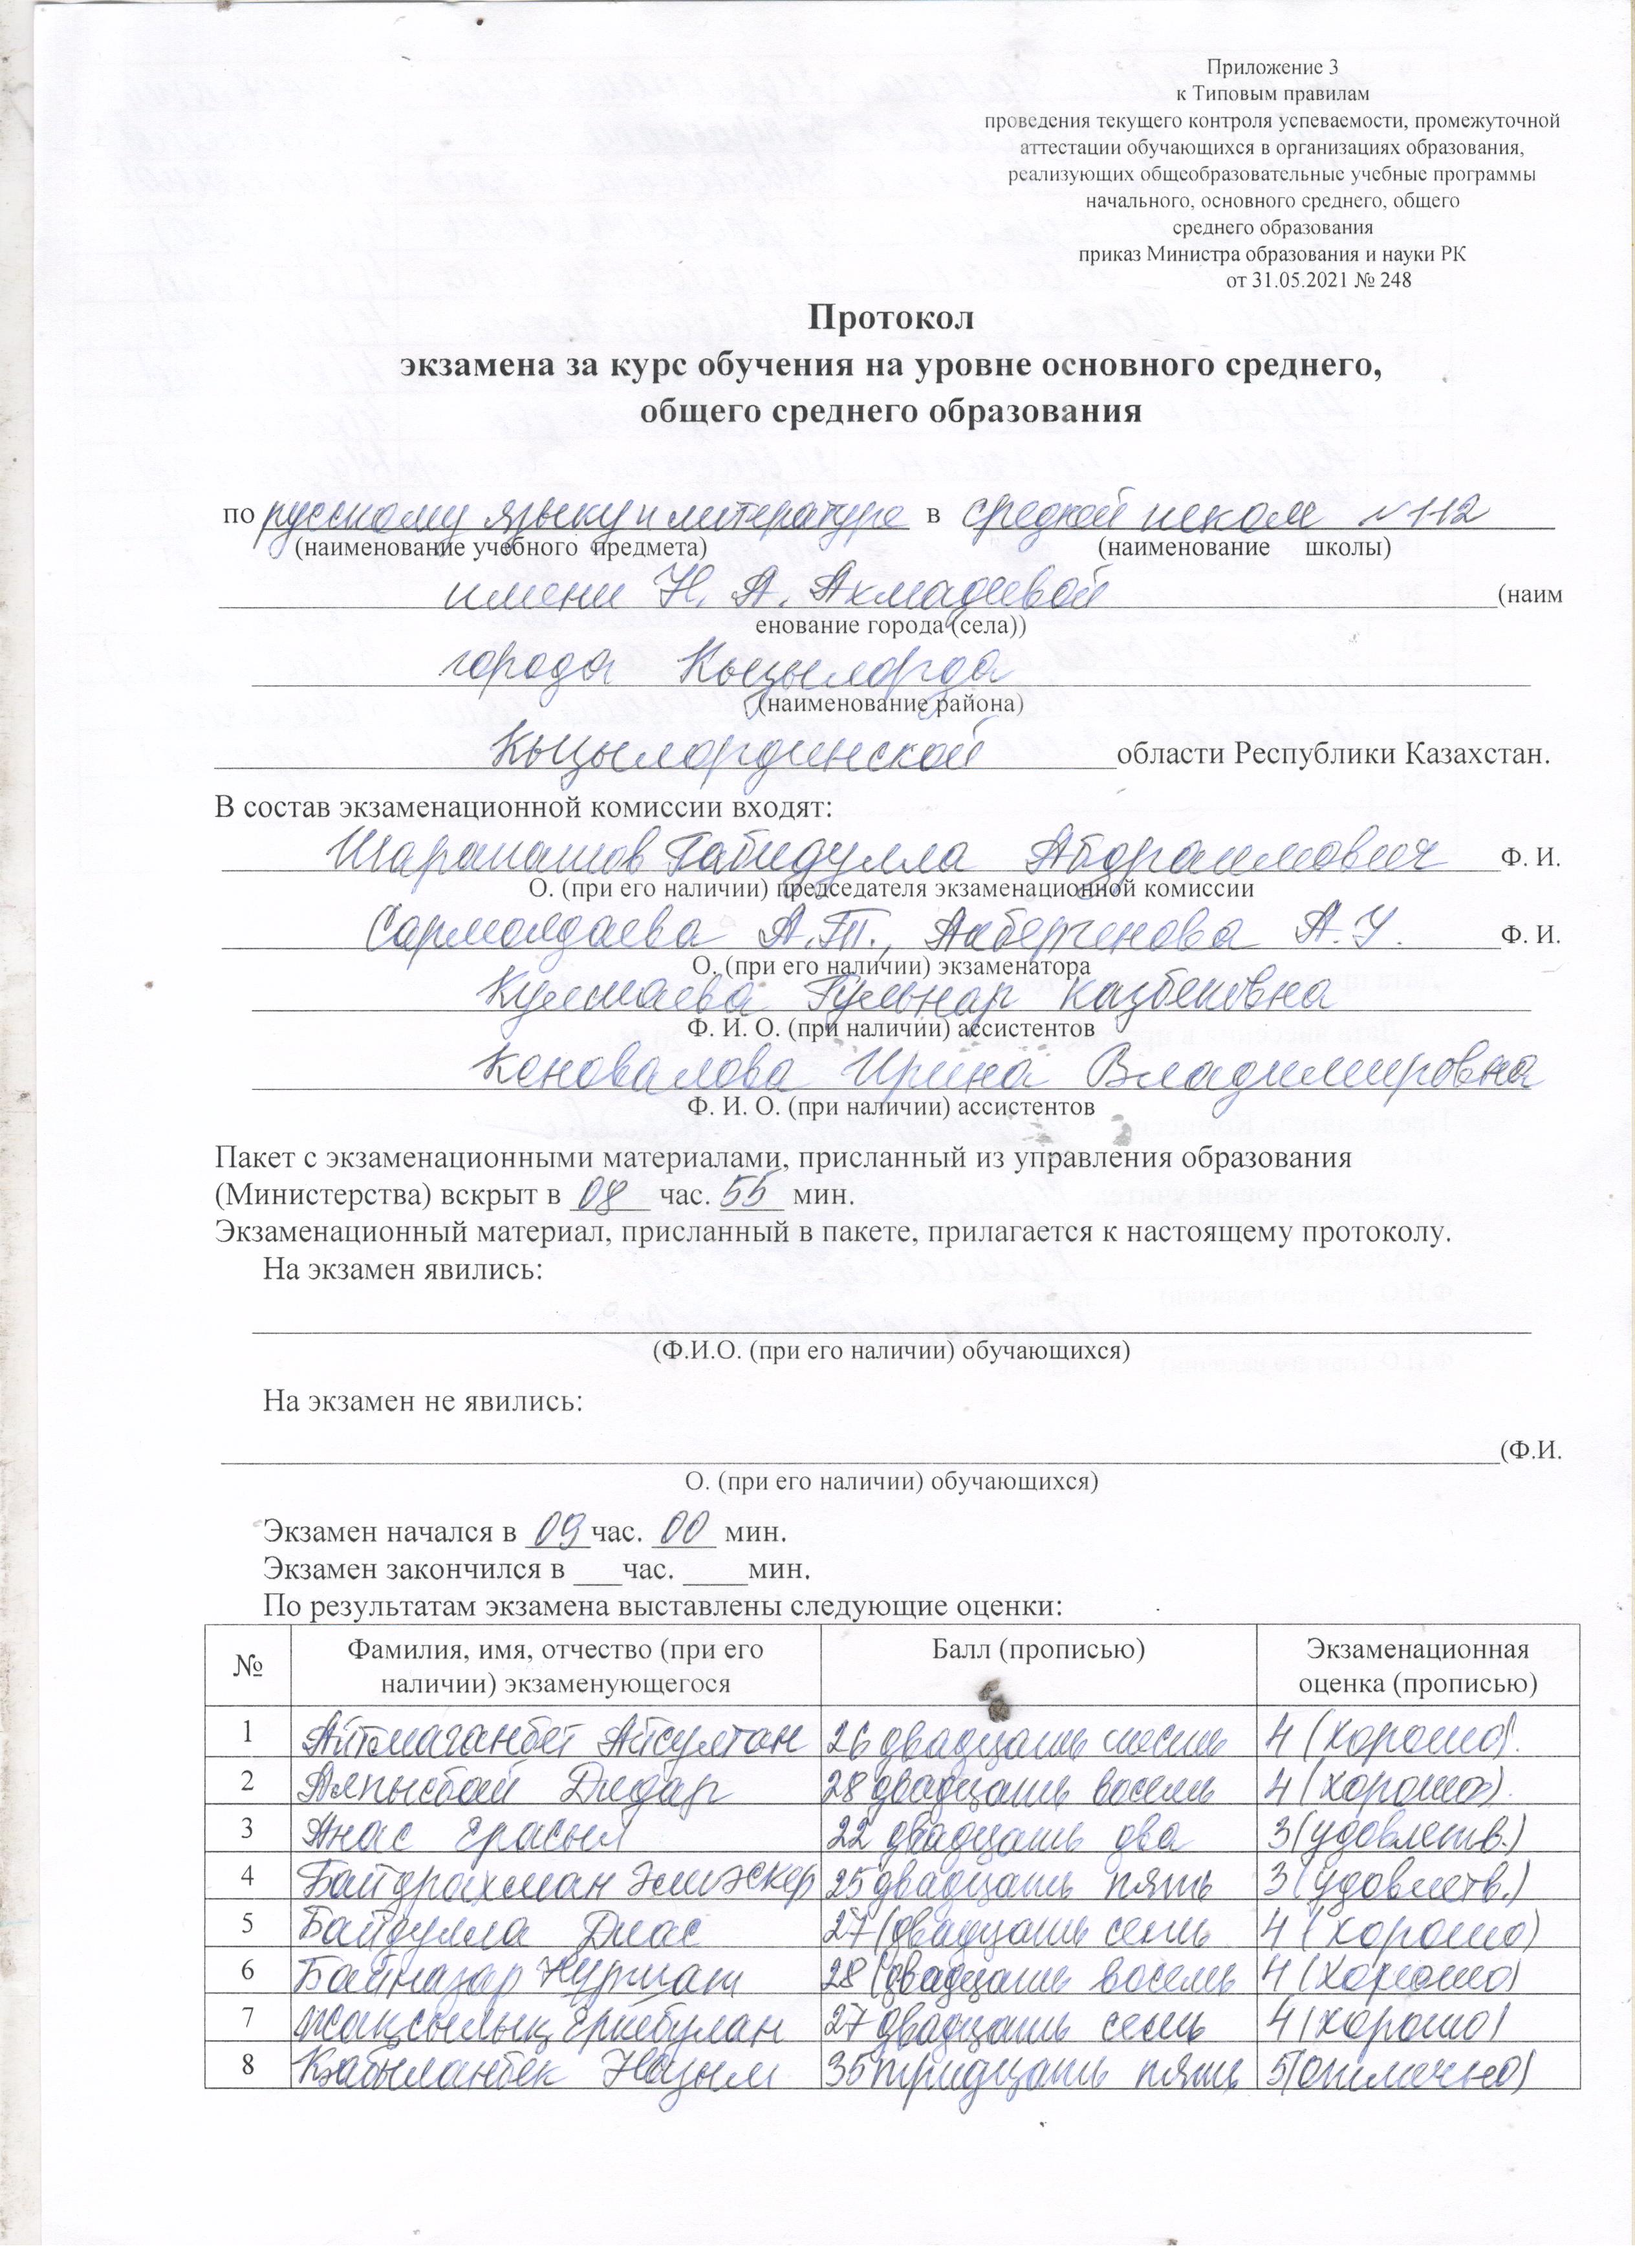 Приложение 3
к Типовым правилам
проведения текущего контроля успеваемости, промежуточной
аттестации обучающихся в организациях образования,
реализующих общеобразовательные учебные программы
начального, основного среднего, общего
среднего образования
приказ Министра образования и науки РК
от 31.05.2021 № 248
Протокол
экзамена за курс обучения на уровне основного среднего,
общего среднего образования
по русскому языку и литературе в средней школе №112
(наименование учебного предмета) (наименование школы)
имени Н. А. Ахмадеевой (наим
енование города (села))
города Кызылорда
(наименование района)
Кызылординской области Республики Казахстан.
В состав экзаменационной комиссии входят:
Шарапашов Габидулла Абдраимович Ф. И.
О. (при его наличии) председателя экзаменационной комиссии
Сармолдаева А.Т., Акбергенова А.У. Ф. И.
О. (при его наличии) экзаменатора
Кулшаева Гульнар Казбековна
Ф. И. О. (при наличии) ассистентов
Коновалова Ирина Владимировна
Ф. И. О. (при наличии) ассистентов
Пакет с экзаменационными материалами, присланный из управления образования
(Министерства) вскрыт в 08 час. 55 мин.
Экзаменационный материал, присланный в пакете, прилагается к настоящему протоколу.
На экзамен явились:
(Ф.И.О. (при его наличии) обучающихся)
На экзамен не явились:
(Ф.И.
О. (при его наличии) обучающихся)
Экзамен начался в 09 час. 00 мин.
Экзамен закончился в ___час. ____мин.
По результатам экзамена выставлены следующие оценки:
№ Фамилия, имя, отчество (при его наличии) экзаменующегося Балл (прописью) Экзаменационная оценка (прописью)
1 Айтмаганбет Айсултан 26 двадцать шесть 4 (хорошо).
2 Алпысбай Дидар 28 двадцать восемь 4 (хорошо).
3 Анас Ерасыл 22 двадцать два 3 (удовлетв.)
4 Байдрахман Әлиәскер 25 двадцать пять 3 (удовлетв.)
5 Байдулла Диас 27 (двадцать семь 4 (хорошо)
6 Байназар Нуршат 28 (двадцать восемь 4 (хорошо)
7 Жақсылық Еркебулан 27 двадцать семь 4 (хорошо)
8 Қабыланбек Назым 35 тридцать пять 5 (отлично)